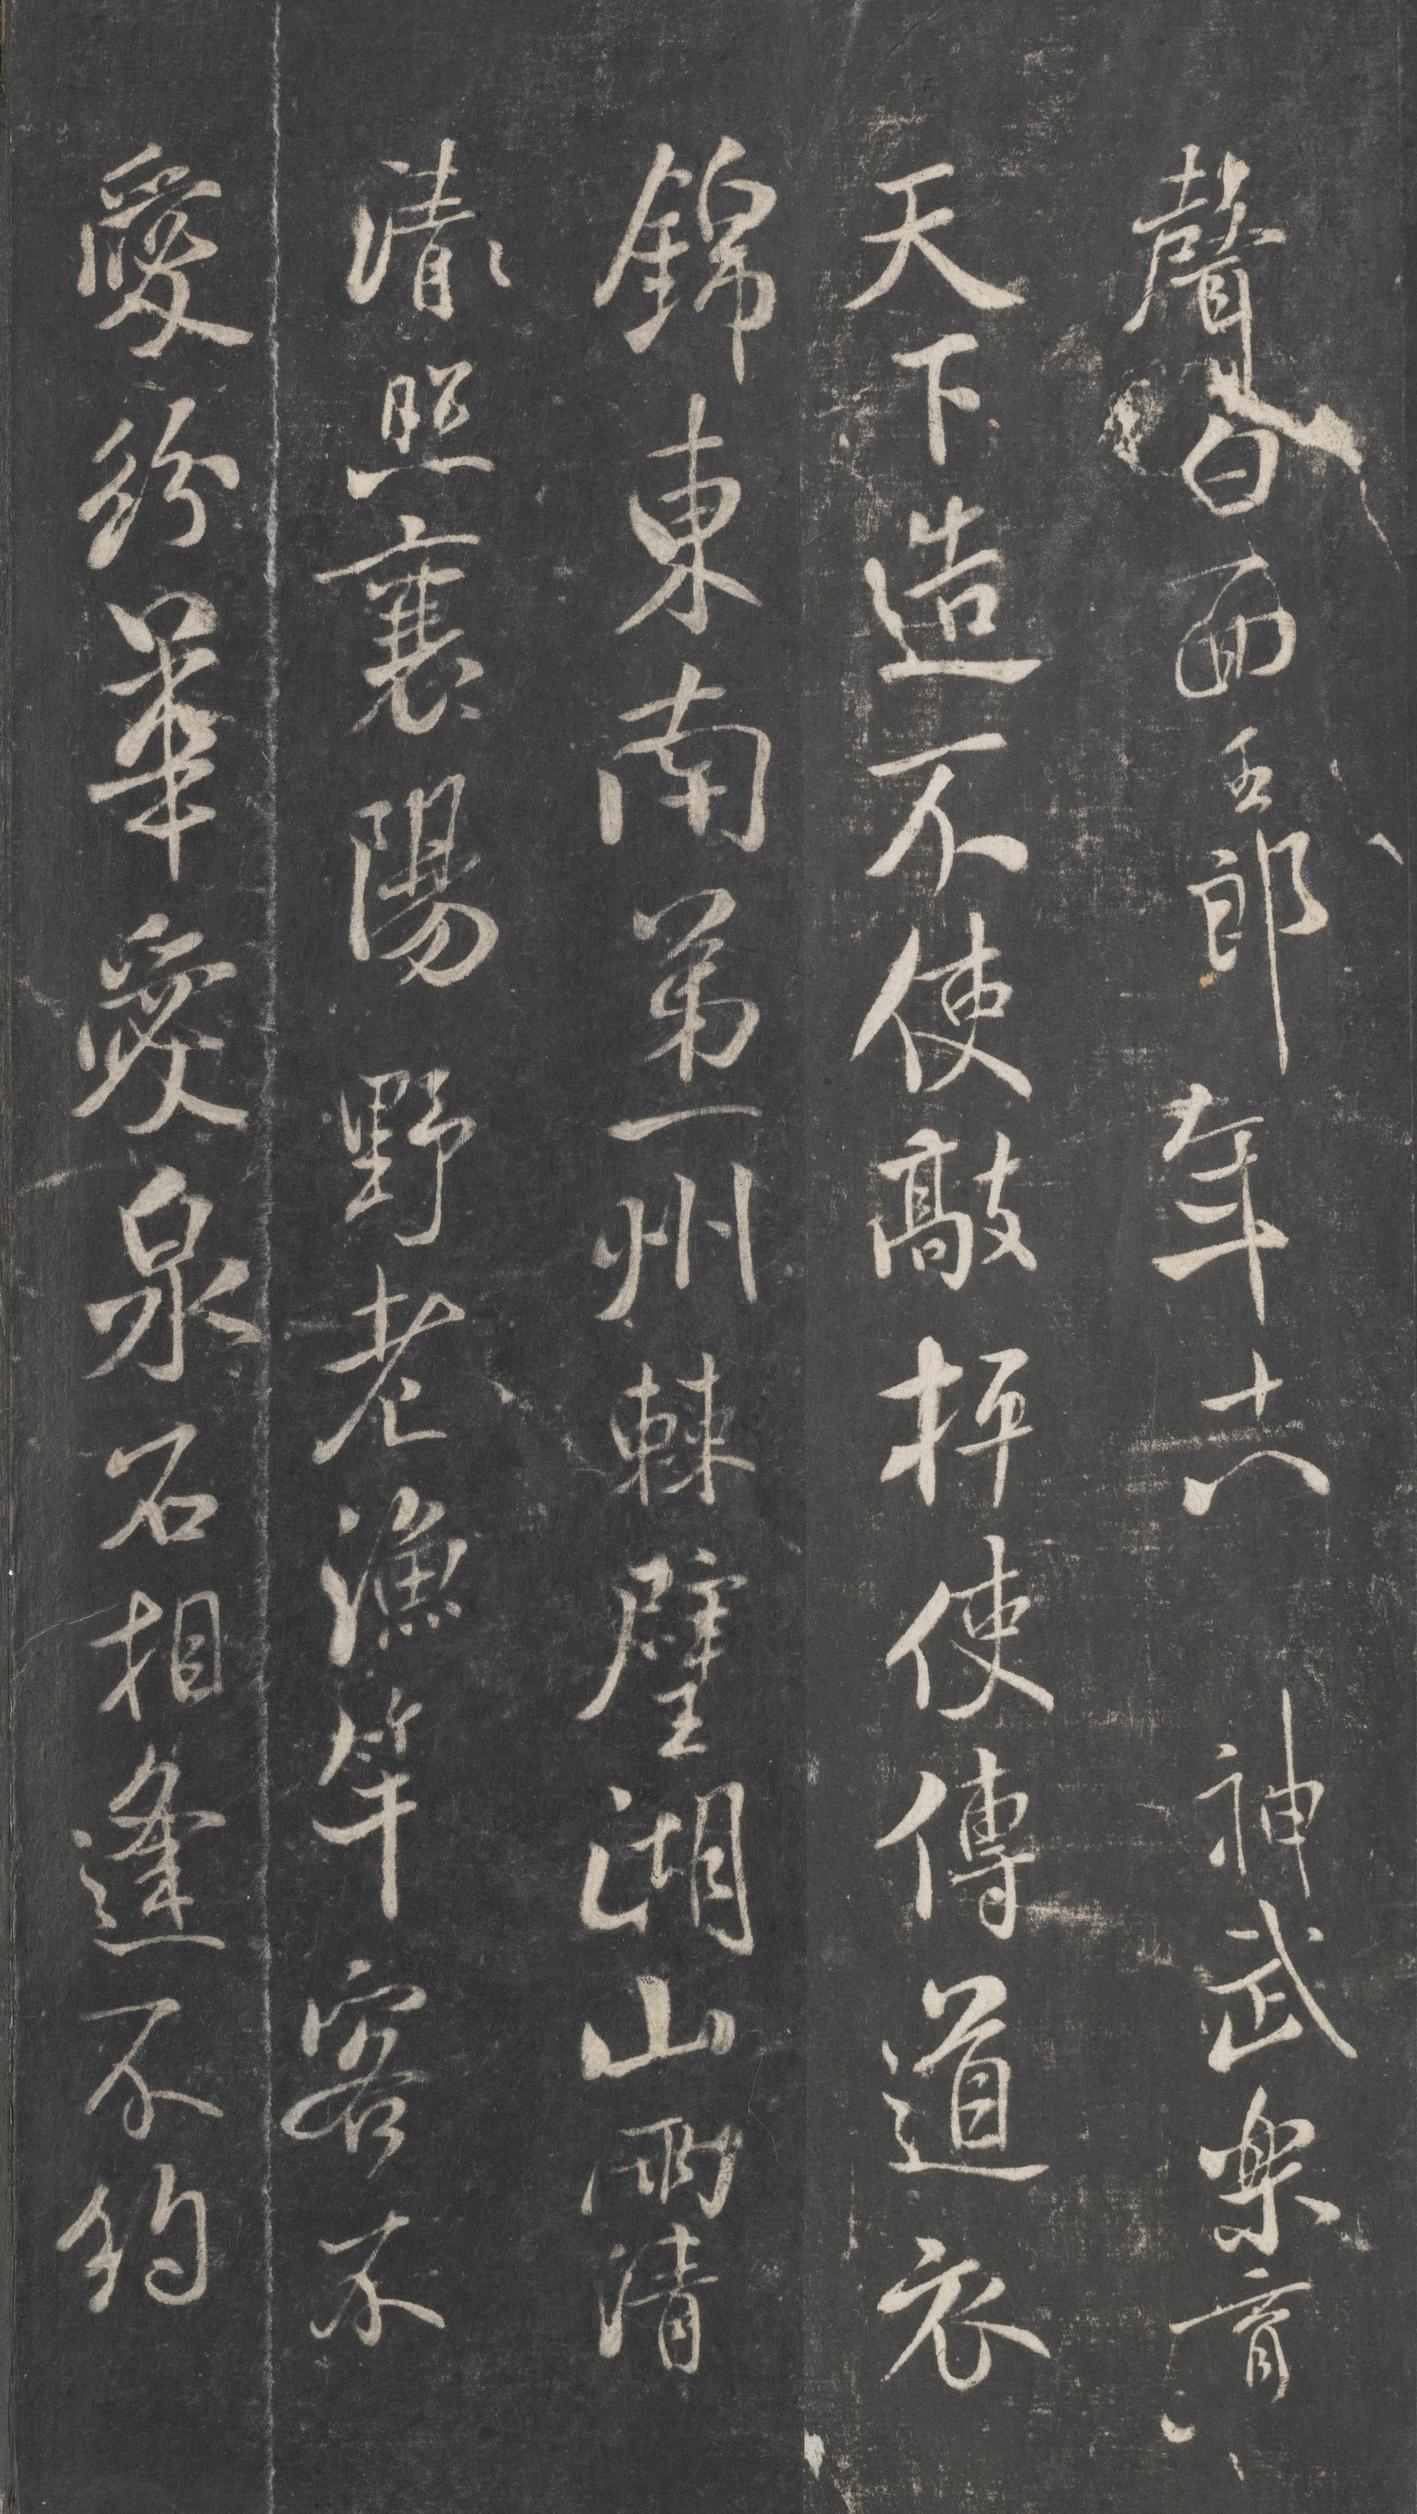 聲白面玉郎年十八 神武樂育
天下造不使敲枰使傳道衣
錦東南第一州棘璧湖山兩清
清照襄陽野老漁竿客不
愛紛華愛泉石相逢不約